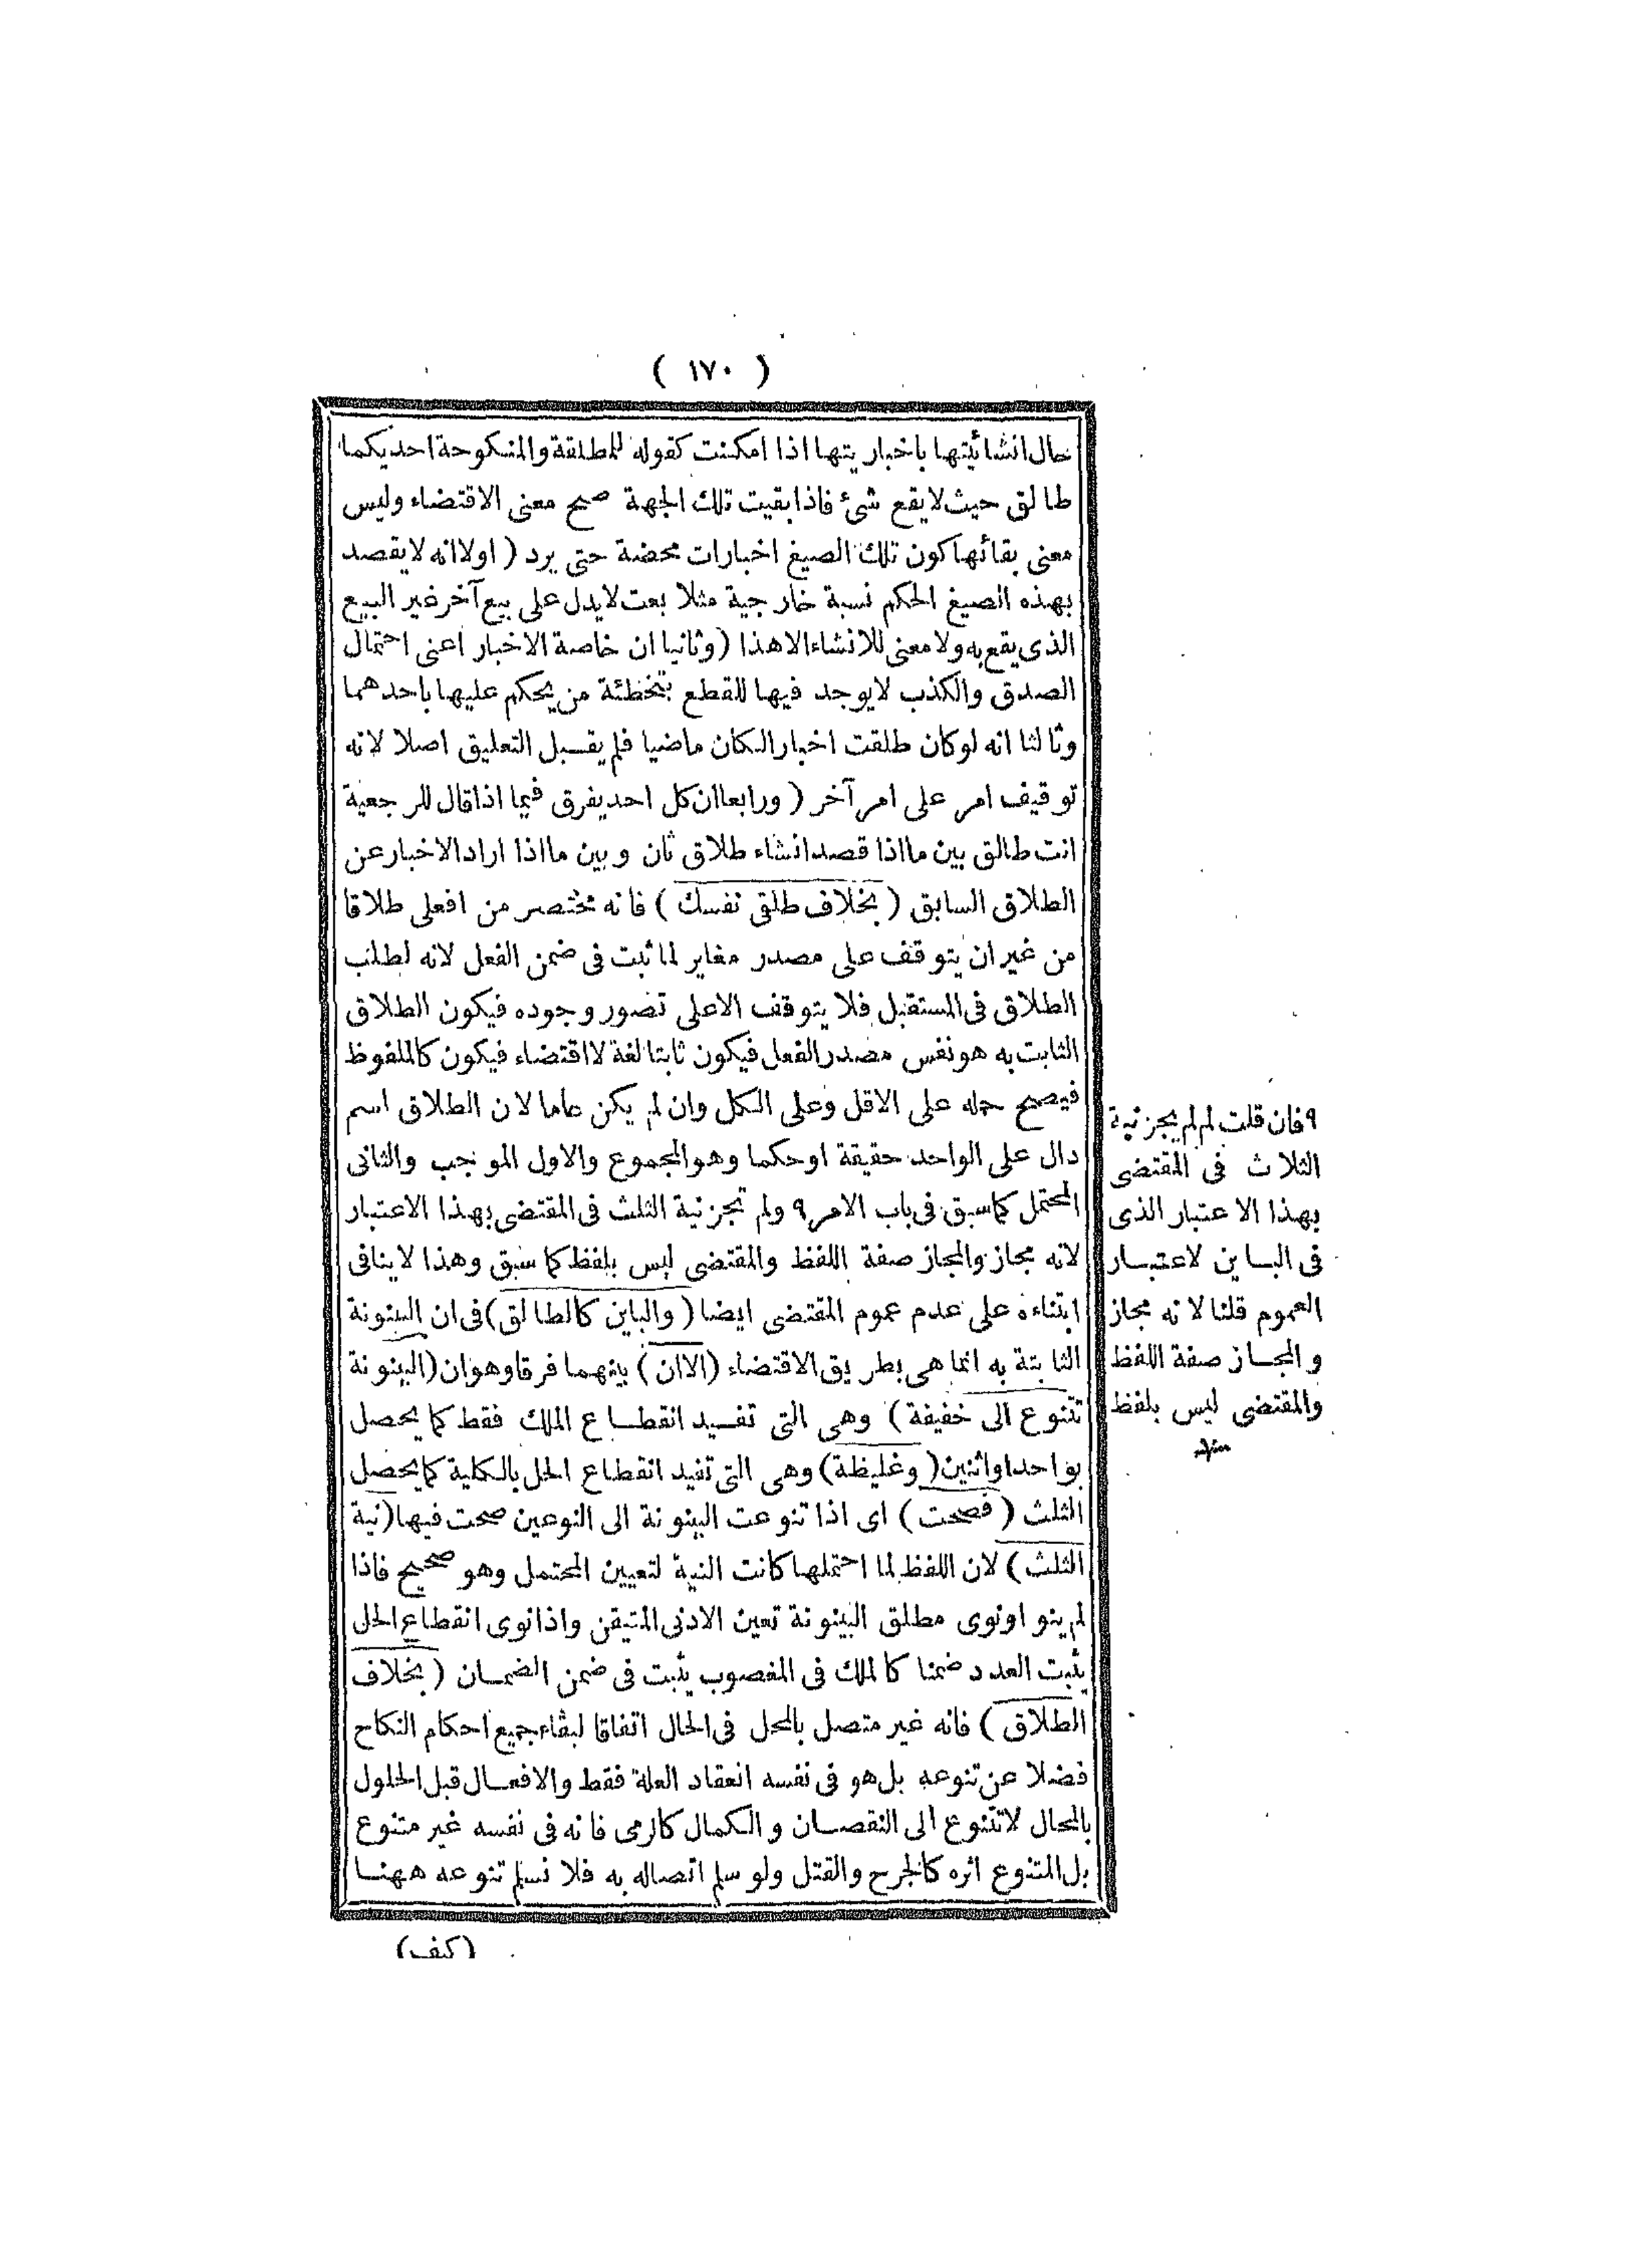 ( ١٧٠ )
حال انشائيتها باخباريتها اذا امكنت كقوله للمطلقة والمنكوحة احديكما
طالق حيث لا يقع شئ فاذا بقيت تلك الجهة صح معنى الاقتضاء وليس
معنى بقائها كون تلك الصيغ اخبارات محضة حتى يرد ( اولا انه لا يقصد
بهذه الصيغ الحكم نسبة خارجية مثلا بعت لا يدل على بيع آخر غير البيع
الذى يقع به ولا معنى للانشاء الا هذا ( وثانيا ان خاصة الاخبار اعنى احتمال
الصدق والكذب لا يوجد فيها للقطع بتخطئة من يحكم عليها باحدهما
وثالثا انه لو كان طلقت اخبارا لكان ماضيا فلم يقبل التعليق اصلا لانه
توقيف امر على امر آخر ( ورابعا ان كل احد يفرق فيما اذا قال للرجعية
انت طالق بين ما اذا قصد انشاء طلاق ثان وبين ما اذا اراد الاخبار عن
الطلاق السابق ( بخلاف طلقى نفسك ) فانه مختصر من افعلى طلاقا
من غير ان يتوقف على مصدر مغاير لما ثبت فى ضمن الفعل لانه لطلب
الطلاق فى المستقبل فلا يتوقف الا على تصور وجوده فيكون الطلاق
الثابت به هو نفس مصدر الفعل فيكون ثابتا لغة لا اقتضاء فيكون كالملفوظ
فيصح حمله على الاقل وعلى الكل وان لم يكن عاما لان الطلاق اسم
دال على الواحد حقيقة او حكما وهو المجموع والاول الموجب والثانى
المحتمل كما سبق فى باب الامر ٩ ولم تجز نية الثلث فى المقتضى بهذا الاعتبار
لانه مجاز والمجاز صفة اللفظ والمقتضى ليس بلفظ كما سبق وهذا لا ينافى
ابتناءه على عدم عموم المقتضى ايضا ( والباين كالطالق ) فى ان البينونة
الثابتة به انما هى بطريق الاقتضاء ( الا ان ) بينهما فرقا وهو ان ( البينونة
تتنوع الى خفيفة ) وهى التى تفيد انقطاع الملك فقط كما يحصل
بواحد او اثنين ( وغليظة ) وهى التى تفيد انقطاع الحل بالكلية كما يحصل
الثلث ( فصحت ) اى اذا تنوعت البينونة الى النوعين صحت فيها ( نية
الثلث ) لان اللفظ لما احتملها كانت النية لتعيين المحتمل وهو صحيح فاذا
لم ينو او نوى مطلق البينونة تعين الادنى المتيقن واذا نوى انقطاع الحل
يثبت العدد ضمنا كالملك فى المغصوب يثبت فى ضمن الضمان ( بخلاف
الطلاق ) فانه غير متصل بالمحل فى الحال اتفاقا لبقاء جميع احكام النكاح
فضلا عن تنوعه بل هو فى نفسه انعقاد العلة فقط والافعال قبل الحلول
بالمحال لا تتنوع الى النقصان والكمال كالرمى فانه فى نفسه غير متنوع
بل المتنوع اثره كالجرح والقتل ولو سلم اتصاله به فلا نسلم تنوعه ههنا
(كيف)
٩ فان قلت لم لم يجز نية
الثلاث فى المقتضى
بهذا الاعتبار الذى
فى الباين لاعتبار
العموم قلنا لانه مجاز
والمجاز صفة اللفظ
والمقتضى ليس بلفظ
منه